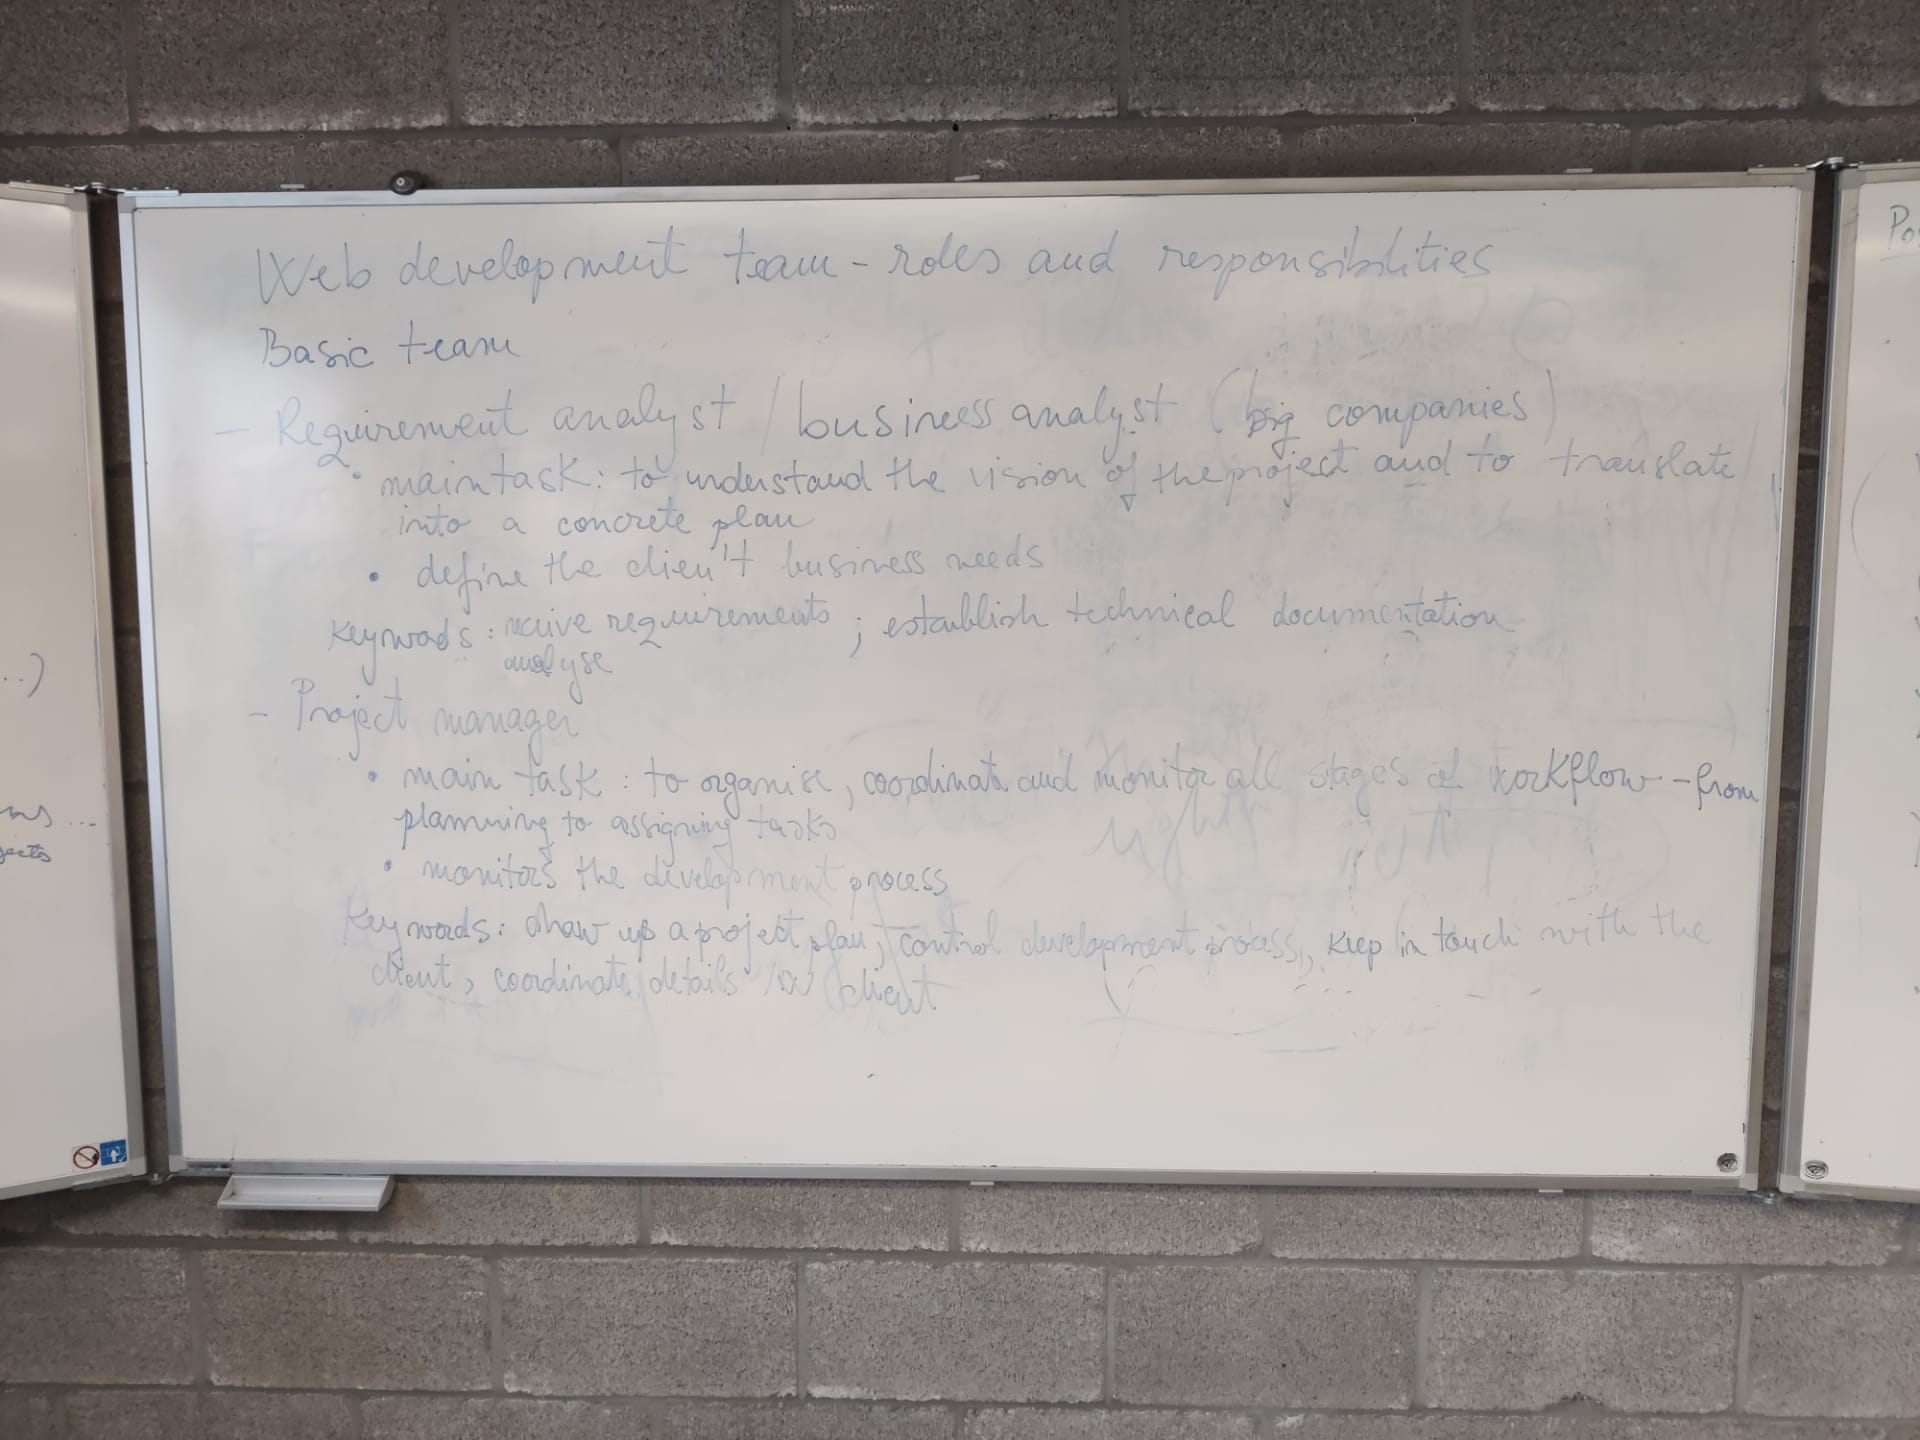 Web development team - roles and responsibilities
Basic team
- Requirement analyst / business analyst (big companies)
• main task: to understand the vision of the project and to translate
into a concrete plan
• define the clien't business needs
Keywods: receive requirements ; establish technical documentation
analyse
- Project manager
• main task : to organise, coordinate and monitor all stages of workflow - from
planning to assigning tasks
• monitors the development process
Keywords: draw up a project plan, control development process, keep in touch with the
client, coordinate details client
Po
..)
...
jects